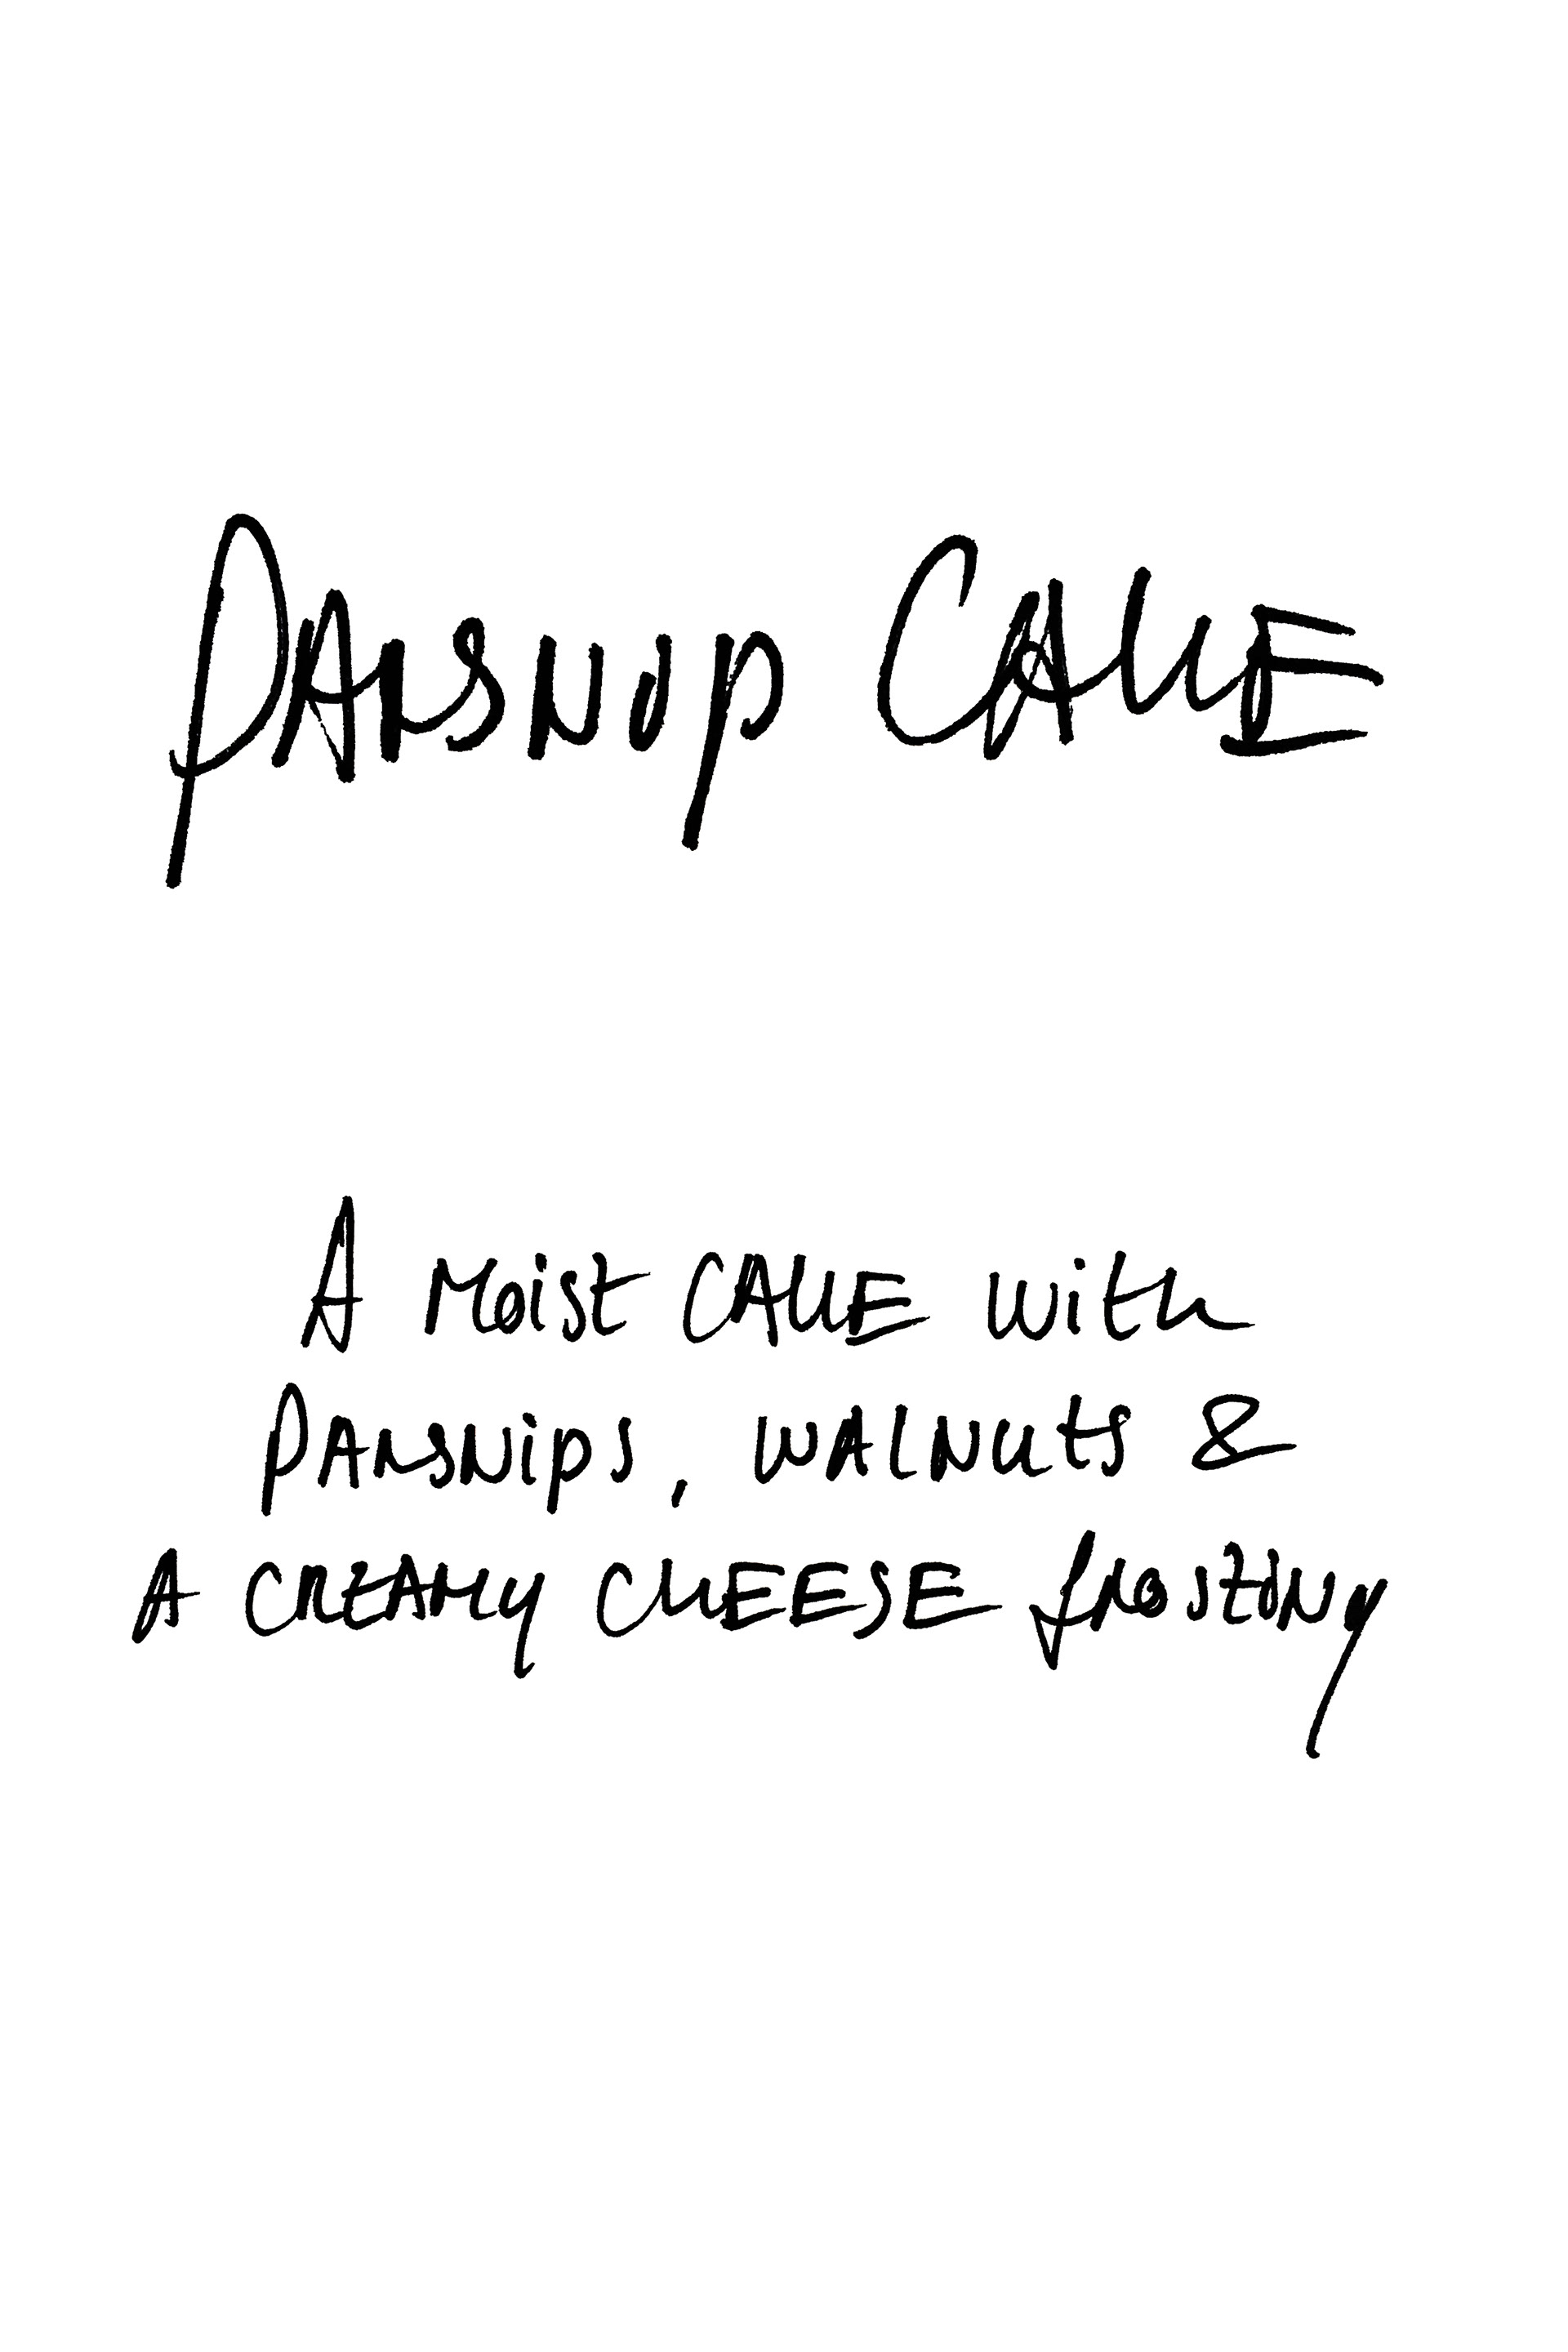 PARSNIP CAKE
A Moist CAKE with
PARSNips, WALNuts &
A CREAMY CHEESE frosting